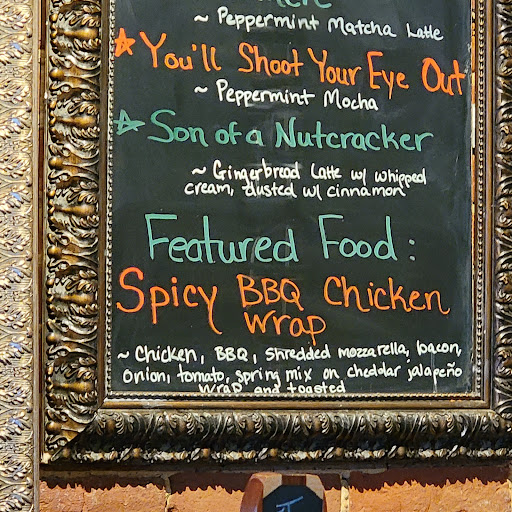 ~ Peppermint Matcha Latte
☆ You'll Shoot Your Eye Out
~ Peppermint Mocha
☆ Son of a Nutcracker
~ Gingerbread Latte w/ whipped
cream, dusted w/ cinnamon
Featured Food:
Spicy BBQ Chicken
Wrap
~ Chicken, BBQ, shredded mozzarella, bacon,
onion, tomato, spring mix on cheddar jalapeño
wrap and toasted